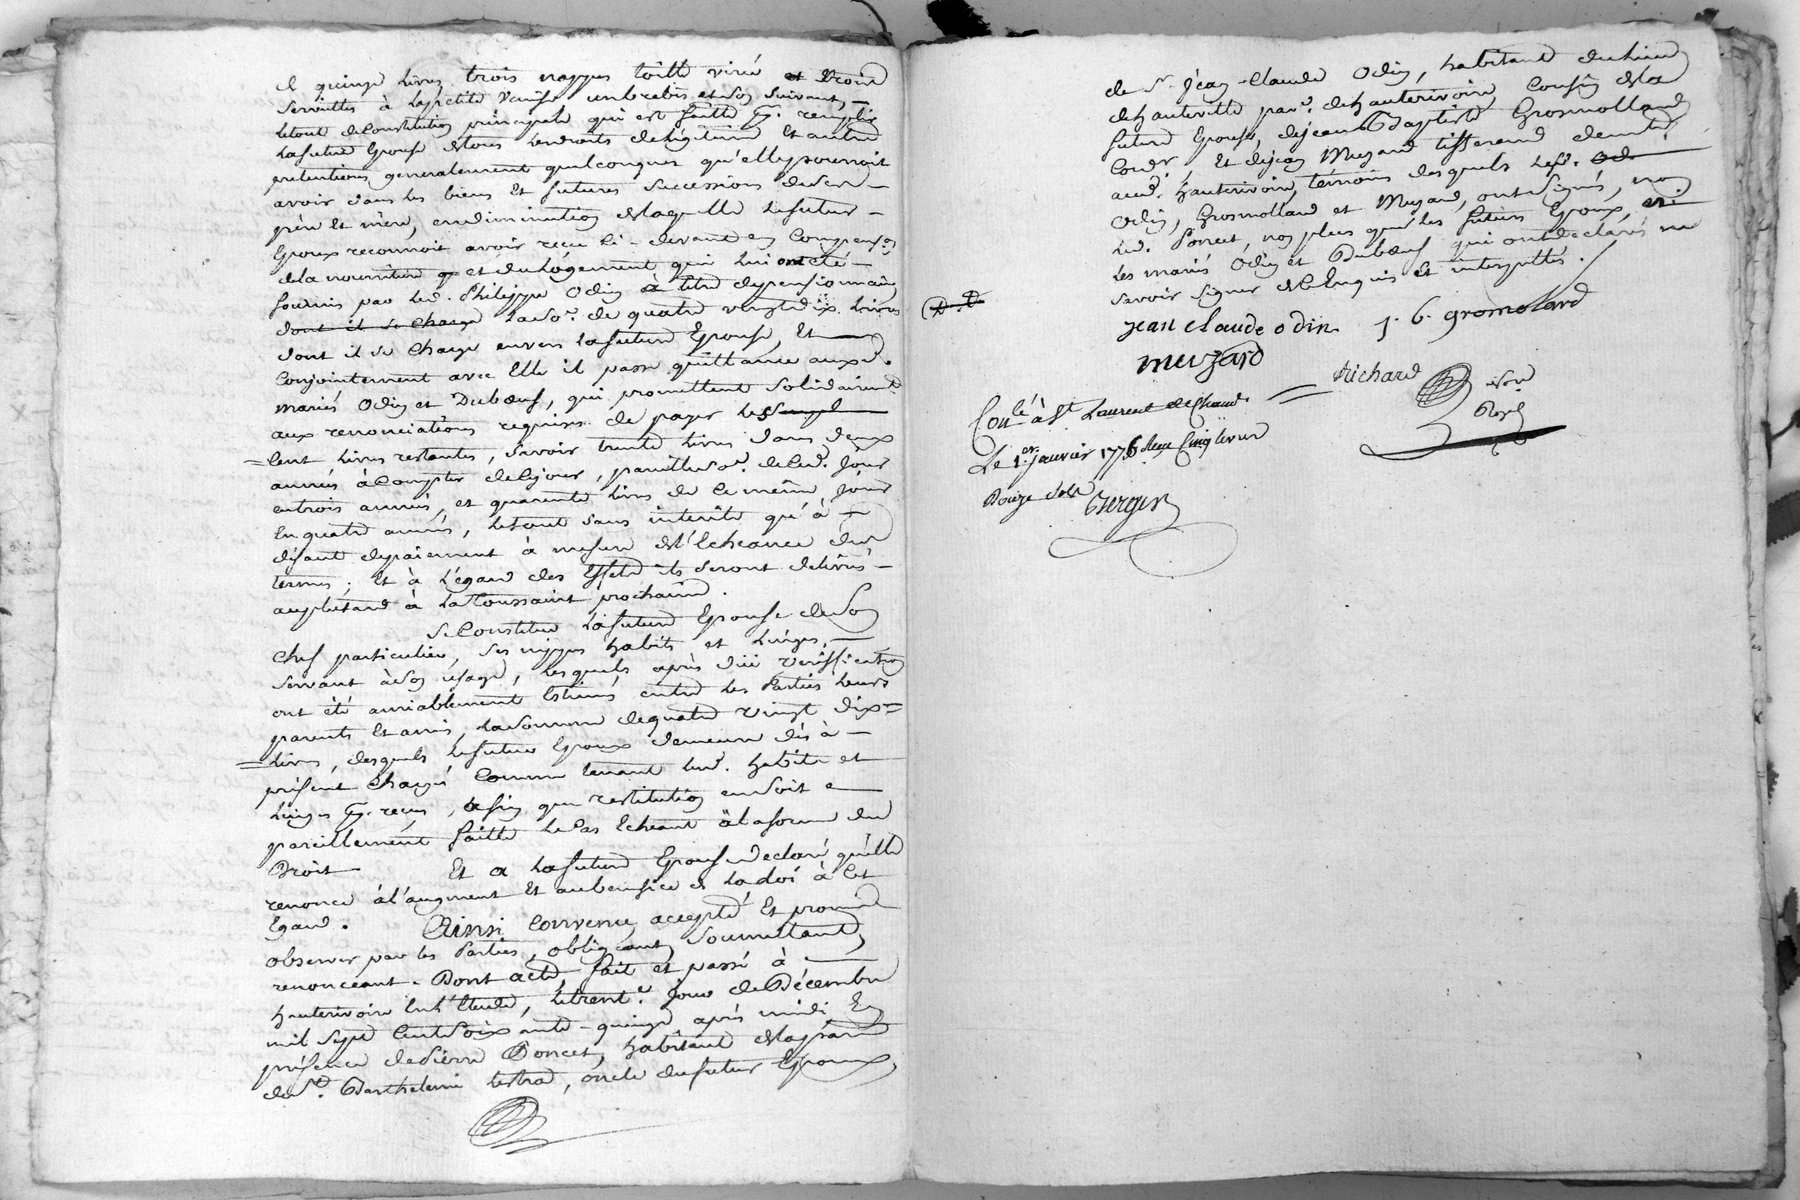 et quinze livres, trois nappes toille virée et trois
serviettes à la petite Venise une brebis et son suivant, —
le tout de Constitution principale qui est faitte pr. remplir
la future Epouse de tous les droits de légitime Et autres
pretentions generalement quelconques qu'elle pourroit
avoir dans les biens Et futures successions de ses —
père Et mère, en diminution de laquelle le futur —
Epoux reconnoit avoir reçu ci-devant en Compensaon
de la nourriture et du Logement qui lui ont été —
fournis par led. Philippe Odin a titre de pensionnaire
dont il se charge la so.e de quatre vingt dix Livres
dont il se Charge envers la future Epouse, Et —
Conjointement avec Elle il passe quittance auxd.
mariés Odin et Dubœuf, qui promettent solidairemt
aux renonciations requises de payer les
Cent livres restantes, savoir trente livres dans deux
années à Compter de ce jour, pareille so.e de led. Jour
en trois années, et quarante livres de Ce même Jour
En quatre années, le tout sans interêts qu'à —
défaut de paiement à mesure de l'Echeance des
termes; Et à l'égard des Effets ils seront délivrés —
au plustard à la Toussaint prochaine.
Se Constitue la future Epouse de son
Chef particulier, ses nippes habits et Linges, —
servant à son usage, lesquels après düe vériffication
ont été amiablement Estimés entre les Parties leurs
parents Et amis, la somme de quatre Vingt dix=
=livres, desquels le futur Epoux demeure dès à —
présent Chargé Comme tenant lesd. habits et
Linges pr. reçus, afin que restitution en soit —
pareillement faitte le Cas Echeant à la forme du
Droit — Et a la future Epouse declaré qu'elle
renonce à l'augment Et au benefice de la loi à Cet
Egard. Ainsi Convenu, accepté Et promis
observer par les Parties, obligeant, soumettant,
renonceant. Dont acte, fait et passé à —
hauterivoire En l'Etude, le trente. Jour de Décembre
mil sept Cent soixante-quinze après midi, En
présence de Pierre Poncet, habitant de la par.
de St. Barthelemi Lestra, oncle du futur Epoux,
de sr. Jean-Claude Odin, habitant du lieu
de hauteville par. de hauterivoire Cousin de la
future Epouse, de Jean Baptiste Grosmolland
Cordr. Et de Jean Muzard tisserand demt.
aud. hauterivoire, témoins desquels lesd. Od.
Odin, Grosmolland et Muzard, ont signés, non
led. Poncet, non plus que les futurs Epoux, et
les mariés Odin et Dubœuf qui ont declarés ne
savoir signer de ce Enquis Et interpellés.
jean claude odin j. b. gromolard
meuzard
Richard
nore
Royal
Conlé à St Laurent de Chamt.
Le 1er. janvier 1776 Reçu Cinq livres
Douze sols
Berger